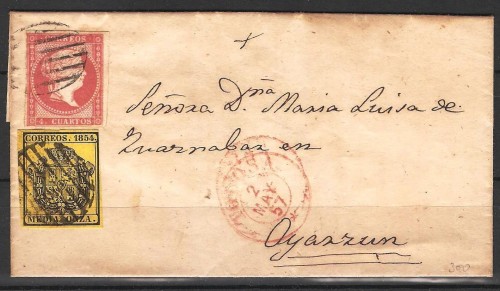 CORREOS
4 CUARTOS
CORREOS. 1854.
MEDIA ONZA.
Señora Dña Maria Luisa de
Zuarnabar en
2
MAY
57
Oyarzun
300